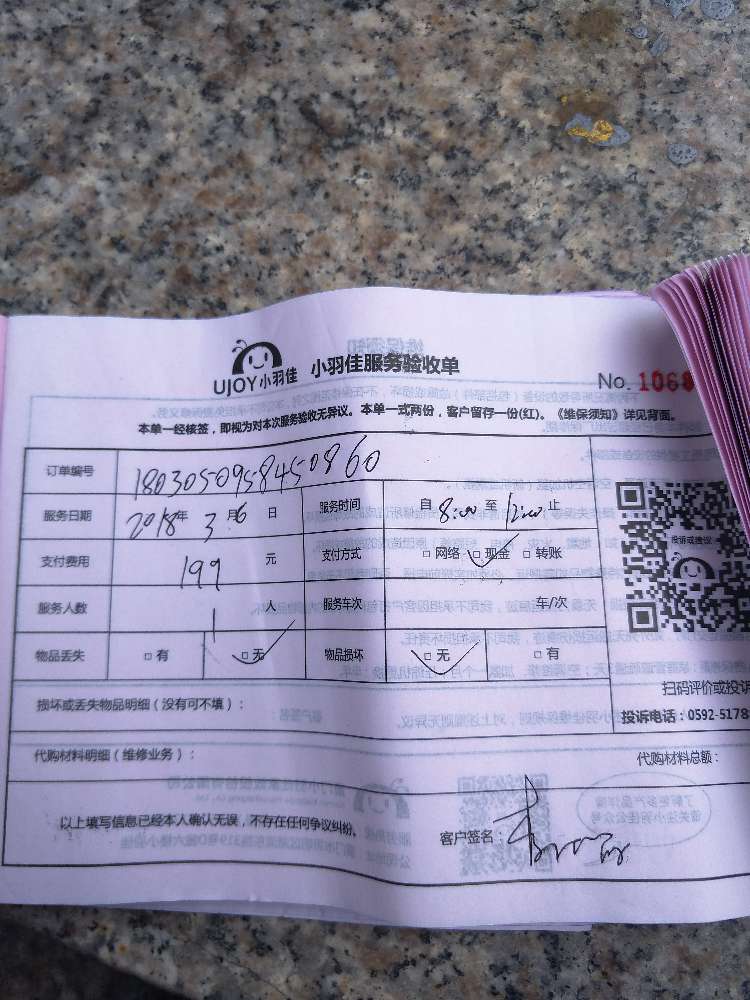 UJOY小羽佳 小羽佳服务验收单
No. 1068
本单一经核签，即视为对本次服务验收无异议。本单一式两份，客户留存一份(红)。《维保须知》详见背面。
订单编号 1803050958450860
服务日期 2018年 3月6日 服务时间 自 8:00 至 12:00 止
支付费用 199 元 支付方式 □ 网络 □ 现金 □ 转账
服务人数 1 人 服务车次 车/次
物品丢失 □ 有 □ 无 物品损坏 □ 无 □ 有
投诉或建议
扫码评价或投诉
投诉电话：0592-5178
损坏或丢失物品明细（没有可不填）：
代购材料明细（维修业务）： 代购材料总额：
以上填写信息已经本人确认无误，不存在任何争议纠纷。 客户签名：